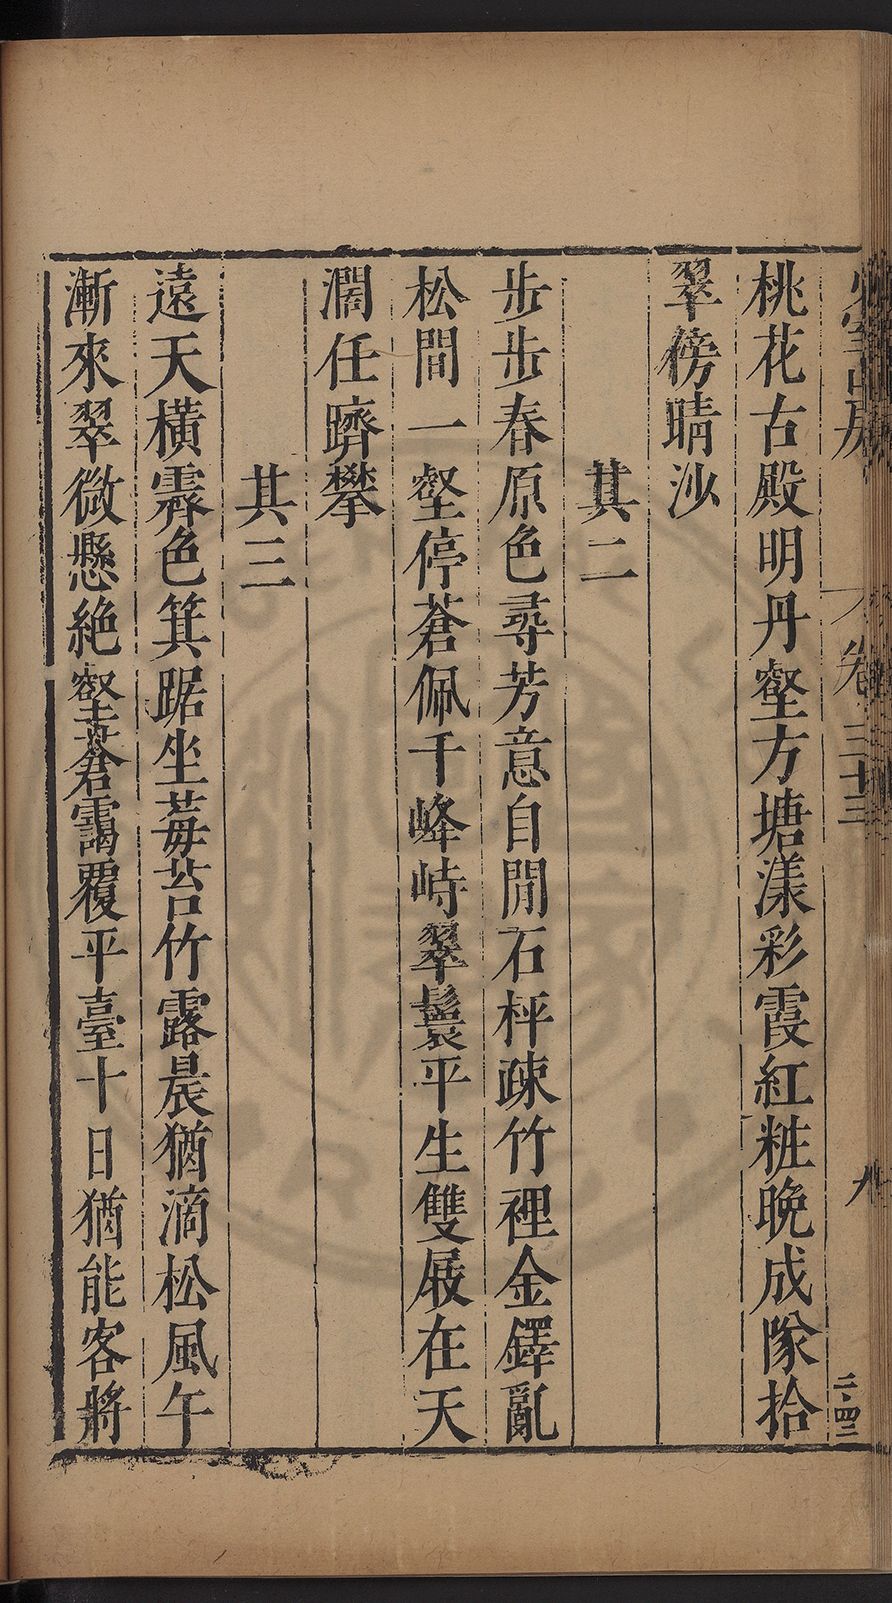 卷三十三
九
桃花古殿明丹壑方塘漾彩霞紅粧晚成隊拾
翠傍晴沙
其二
步步春原色尋芳意自閒石枰疎竹裡金鐸亂
松間一壑停蒼佩千峰峙翠鬟平生雙屐在天
濶任躋攀
其三
遠天橫霽色箕踞坐莓苔竹露晨猶滴松風午
漸來翠微懸絶壑蒼靄覆平臺十日猶能客將